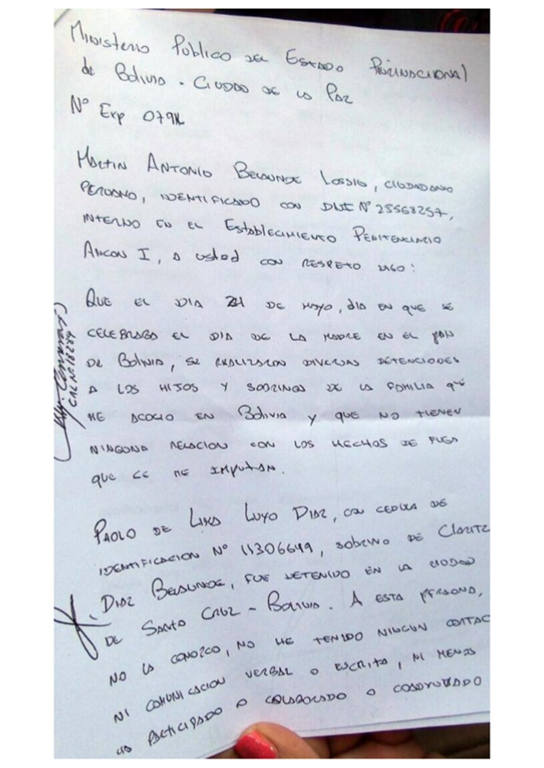 Ministerio Público del Estado Plurinacional
de Bolivia - Ciudad de la Paz
Nº Exp 079
Martin Antonio Belaunde Lossio, ciudadano
peruano, identificado con DNI Nº 25568257,
interno en el Establecimiento Penitenciario
Ancon I, a usted con respeto digo:
Que el dia 24 de mayo, dia en que se
celebraba el dia de la madre en el
de Bolivia, se realizaron diversas detenciones
a los hijos y sobrinos de la familia que
me acogio en Bolivia y que no tienen
ninguna relacion con los hechos de fuga
que se me imputan.
Paolo de Luyo Diaz, con cedula de
identificacion Nº 11306649, sobrino de
Diaz Belaunde, fue detenido en la ciudad
de Santa Cruz - Bolivia. A esta persona,
no la conozco, no he tenido ningun contac
ni comunicacion verbal o escrita, ni menos
ha participado o colaborado o coadyuvado
CAL Nº 18244